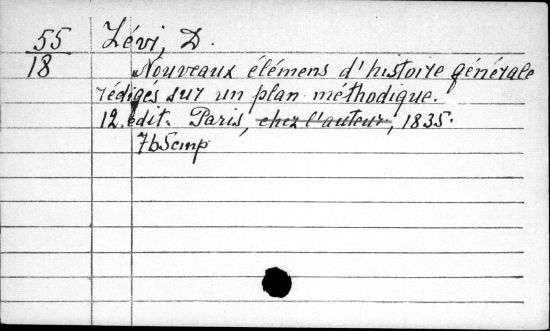 55 Lévi, D.
18
Nouveaux élémens d'histoire générale
rédigés sur un plan méthodique.
12. édit. Paris, chez l'auteur, 1835.
765cmp